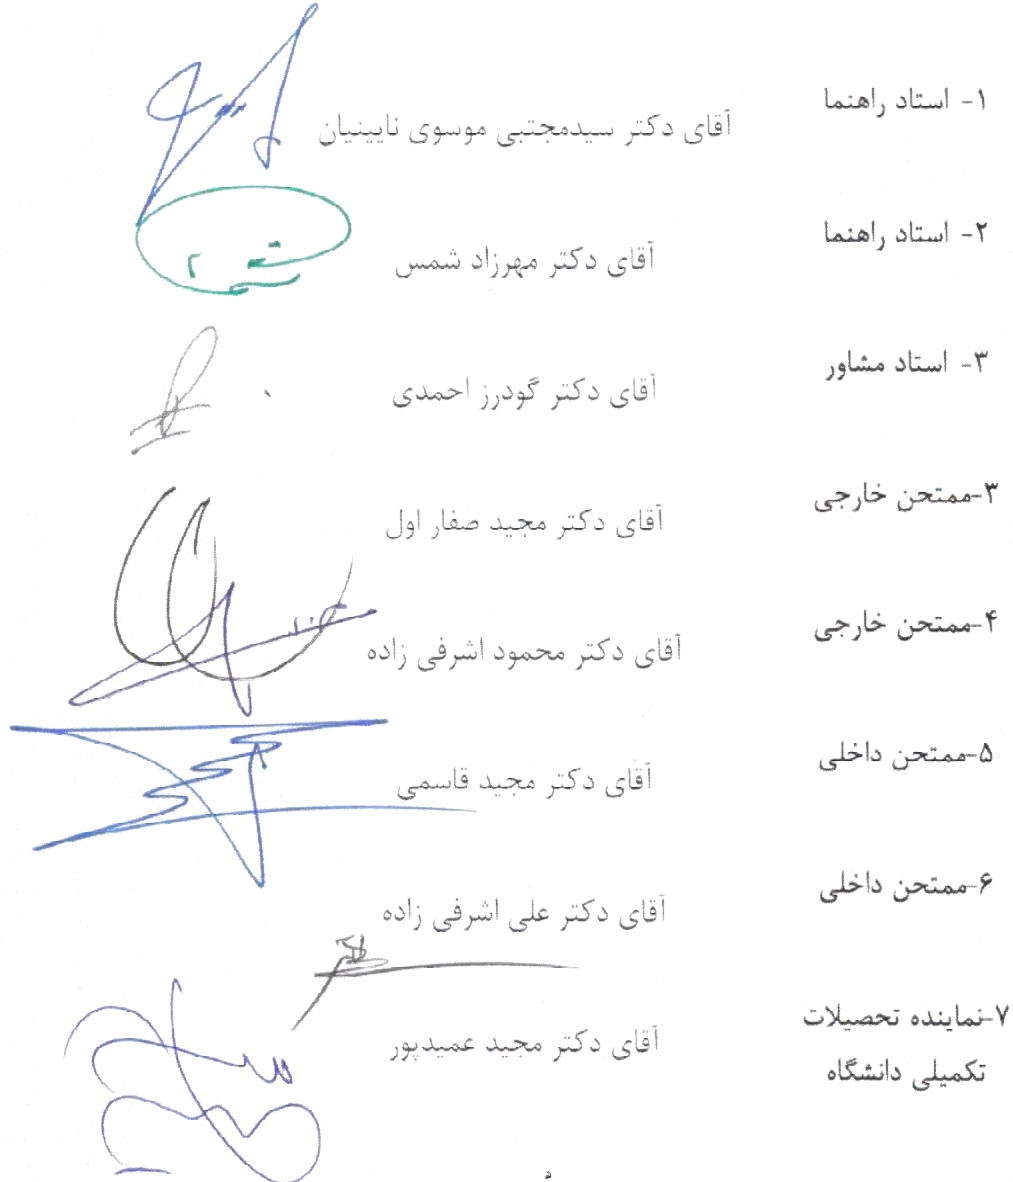 ۱- استاد راهنما
آقای دکتر سیدمجتبی موسوی نایینیان
۲- استاد راهنما
آقای دکتر مهرزاد شمس
۳- استاد مشاور
آقای دکتر گودرز احمدی
۳-ممتحن خارجی
آقای دکتر مجید صفار اول
۴-ممتحن خارجی
آقای دکتر محمود اشرفی زاده
۵-ممتحن داخلی
آقای دکتر مجید قاسمی
۶-ممتحن داخلی
آقای دکتر علی اشرفی زاده
۷-نماینده تحصیلات
آقای دکتر مجید عمیدپور
تکمیلی دانشگاه
د